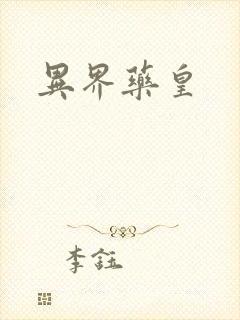 異界藥皇
李鈺